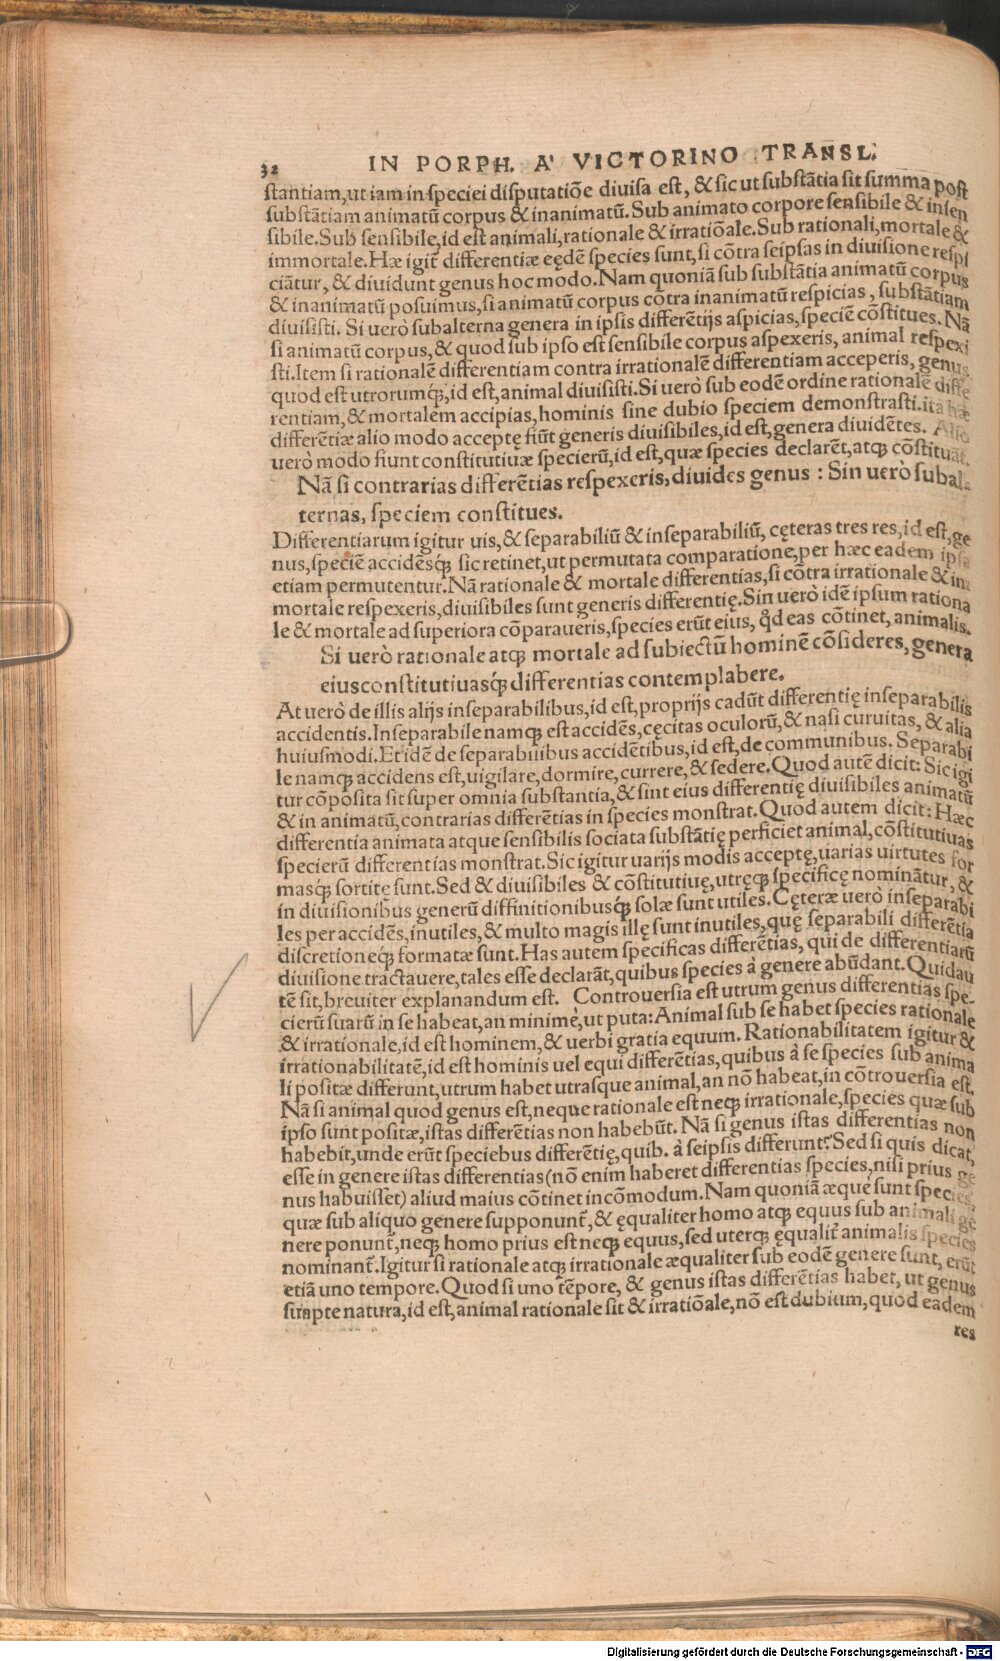 32 IN PORPH. A' VICTORINO TRANSL.
stantiam,ut iam in speciei disputatiõe diuisa est, & sic ut substãtia sit summa post
substãtiam animatũ corpus & inanimatũ. Sub animato corpore sensibile & insen
sibile.Sub sensibile,id est animali,rationale & irratiõale.Sub rationali,mortale &
immortale.Hæ igit᷑ differentiæ eędẽ species sunt,si cõtra seipsas in diuisione respi
ciãtur, & diuidunt genus hoc modo. Nam quoniã sub substãtia animatũ corpus
& inanimatũ posuimus,si animatũ corpus cõtra inanimatũ respicias, substãtiam
diuisisti. Si uerò subalterna genera in ipsis differẽtijs aspicias,speciẽ cõstitues. Nã
si animatũ corpus,& quod sub ipso est sensibile corpus aspexeris, animal respexi
sti.Item si rationalẽ differentiam contra irrationalẽ differentiam acceperis, genus
quod est utrorumq́ꝫ,id est,animal diuisisti.Si uerò sub eodẽ ordine rationalẽ diffe
rentiam,& mortalem accipias,hominis sine dubio speciem demonstrasti.ita hæ
differẽtiæ alio modo acceptę fiũt generis diuisibiles,id est,genera diuidẽtes. Alio
uerò modo fiunt constitutiuæ specierũ,id est,quæ species declarẽt,atqꝫ cõstituãt.
Nã si contrarias differẽtias respexeris,diuides genus : Sin uerò subal-
ternas, speciem constitues.
Differentiarum igitur uis,& separabiliũ & inseparabiliũ, cęteras tres res,id est,ge
nus,speciẽ accidẽsq́ꝫ sic retinet,ut permutata comparatione,per hæc eadem ipsa
etiam permutentur.Nã rationale & mortale differentias,si cõtra irrationale & im
mortale respexeris,diuisibiles sunt generis differentię.Sin uerò idẽ ipsum rationa
le & mortale ad superiora cõparaueris,species erũt eius, qd̃ eas cõtinet, animalis.
Si uerò rationale atqꝫ mortale ad subiectũ hominẽ cõsideres, genera
eius constitutiuasq́ꝫ differentias contemplabere.
At uerò de illis alijs inseparabilibus,id est,proprijs cadũt differentię inseparabilis
accidentis.Inseparabile namqꝫ est accidẽs,cęcitas oculorũ,& nasi curuitas, & alia
huiusmodi. Et idẽ de separabilibus accidẽtibus,id est,de communibus. Separabi
le namqꝫ accidens est,uigilare,dormire,currere,& sedere.Quod autẽ dicit: Sic igi
tur cõposita sit super omnia substantia,& sint eius differentię diuisibiles animatũ
& in animatũ,contrarias differẽtias in species monstrat.Quod autem dicit: Hæc
differentia animata atque sensibilis sociata substãtię perficiet animal,cõstitutiuas
specierũ differentias monstrat.Sic igitur uarijs modis acceptę,uarias uirtutes for
masq́ꝫ sortitę sunt.Sed & diuisibiles & cõstitutiuę,utręqꝫ specificę nominãtur, &
in diuisionibus generũ diffinitionibusq́ꝫ solæ sunt utiles. Cęteræ uerò inseparabi
les per accidẽs,inutiles,& multo magis illę sunt inutiles,quę separabili differẽtia
discretioneq́ꝫ formatæ sunt.Has autem specificas differẽtias, qui de differentiarũ
diuisione tractauere,tales esse declarãt,quibus species à genere abũdant.Quidau
tẽ sit,breuiter explanandum est. Controuersia est utrum genus differentias spe-
cierũ suarũ in se habeat,an minimè,ut puta:Animal sub se habet species rationale
& irrationale,id est hominem,& uerbi gratia equum. Rationabilitatem igitur &
irrationabilitatẽ,id est hominis uel equi differẽtias,quibus à se species sub anima
li positæ differunt,utrum habet utrasque animal,an nõ habeat,in cõtrouersia est.
Nã si animal quod genus est,neque rationale est neqꝫ irrationale,species quæ sub
ipso sunt positæ,istas differẽtias non habebũt. Nã si genus istas differentias non
habebit,unde erũt speciebus differẽtię,quib. à seipsis differunt? Sed si quis dicat,
esse in genere istas differentias(nõ enim haberet differentias species,nisi prius ge
nus habuisset) aliud maius cõtinet incõmodum.Nam quoniã æque sunt species,
quæ sub aliquo genere supponunt᷑,& ęqualiter homo atqꝫ equus sub animali ge
nere ponunt᷑,neqꝫ homo prius est neqꝫ equus,sed uterqꝫ ęqualit᷑ animalis species
nominant᷑.Igitur si rationale atqꝫ irrationale æqualiter sub eodẽ genere sunt, erũt
etiã uno tempore.Quod si uno tẽpore, & genus istas differẽtias habet, ut genus
suapte natura,id est,animal rationale sit & irratiõale,nõ est dubium,quod eadem
res
Digitalisierung gefördert durch die Deutsche Forschungsgemeinschaft - DFG